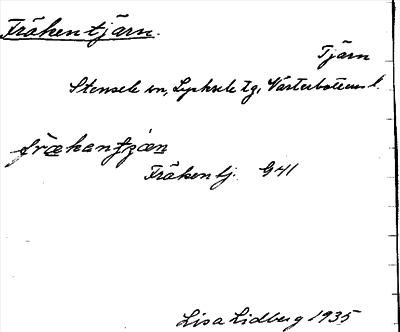 Fräkentjärn.
Tjärn
Stensele sn, Lycksele tg, Västerbottens l.
fräkantjæn
Fräkentj. G41
Lisa Lidberg 1935